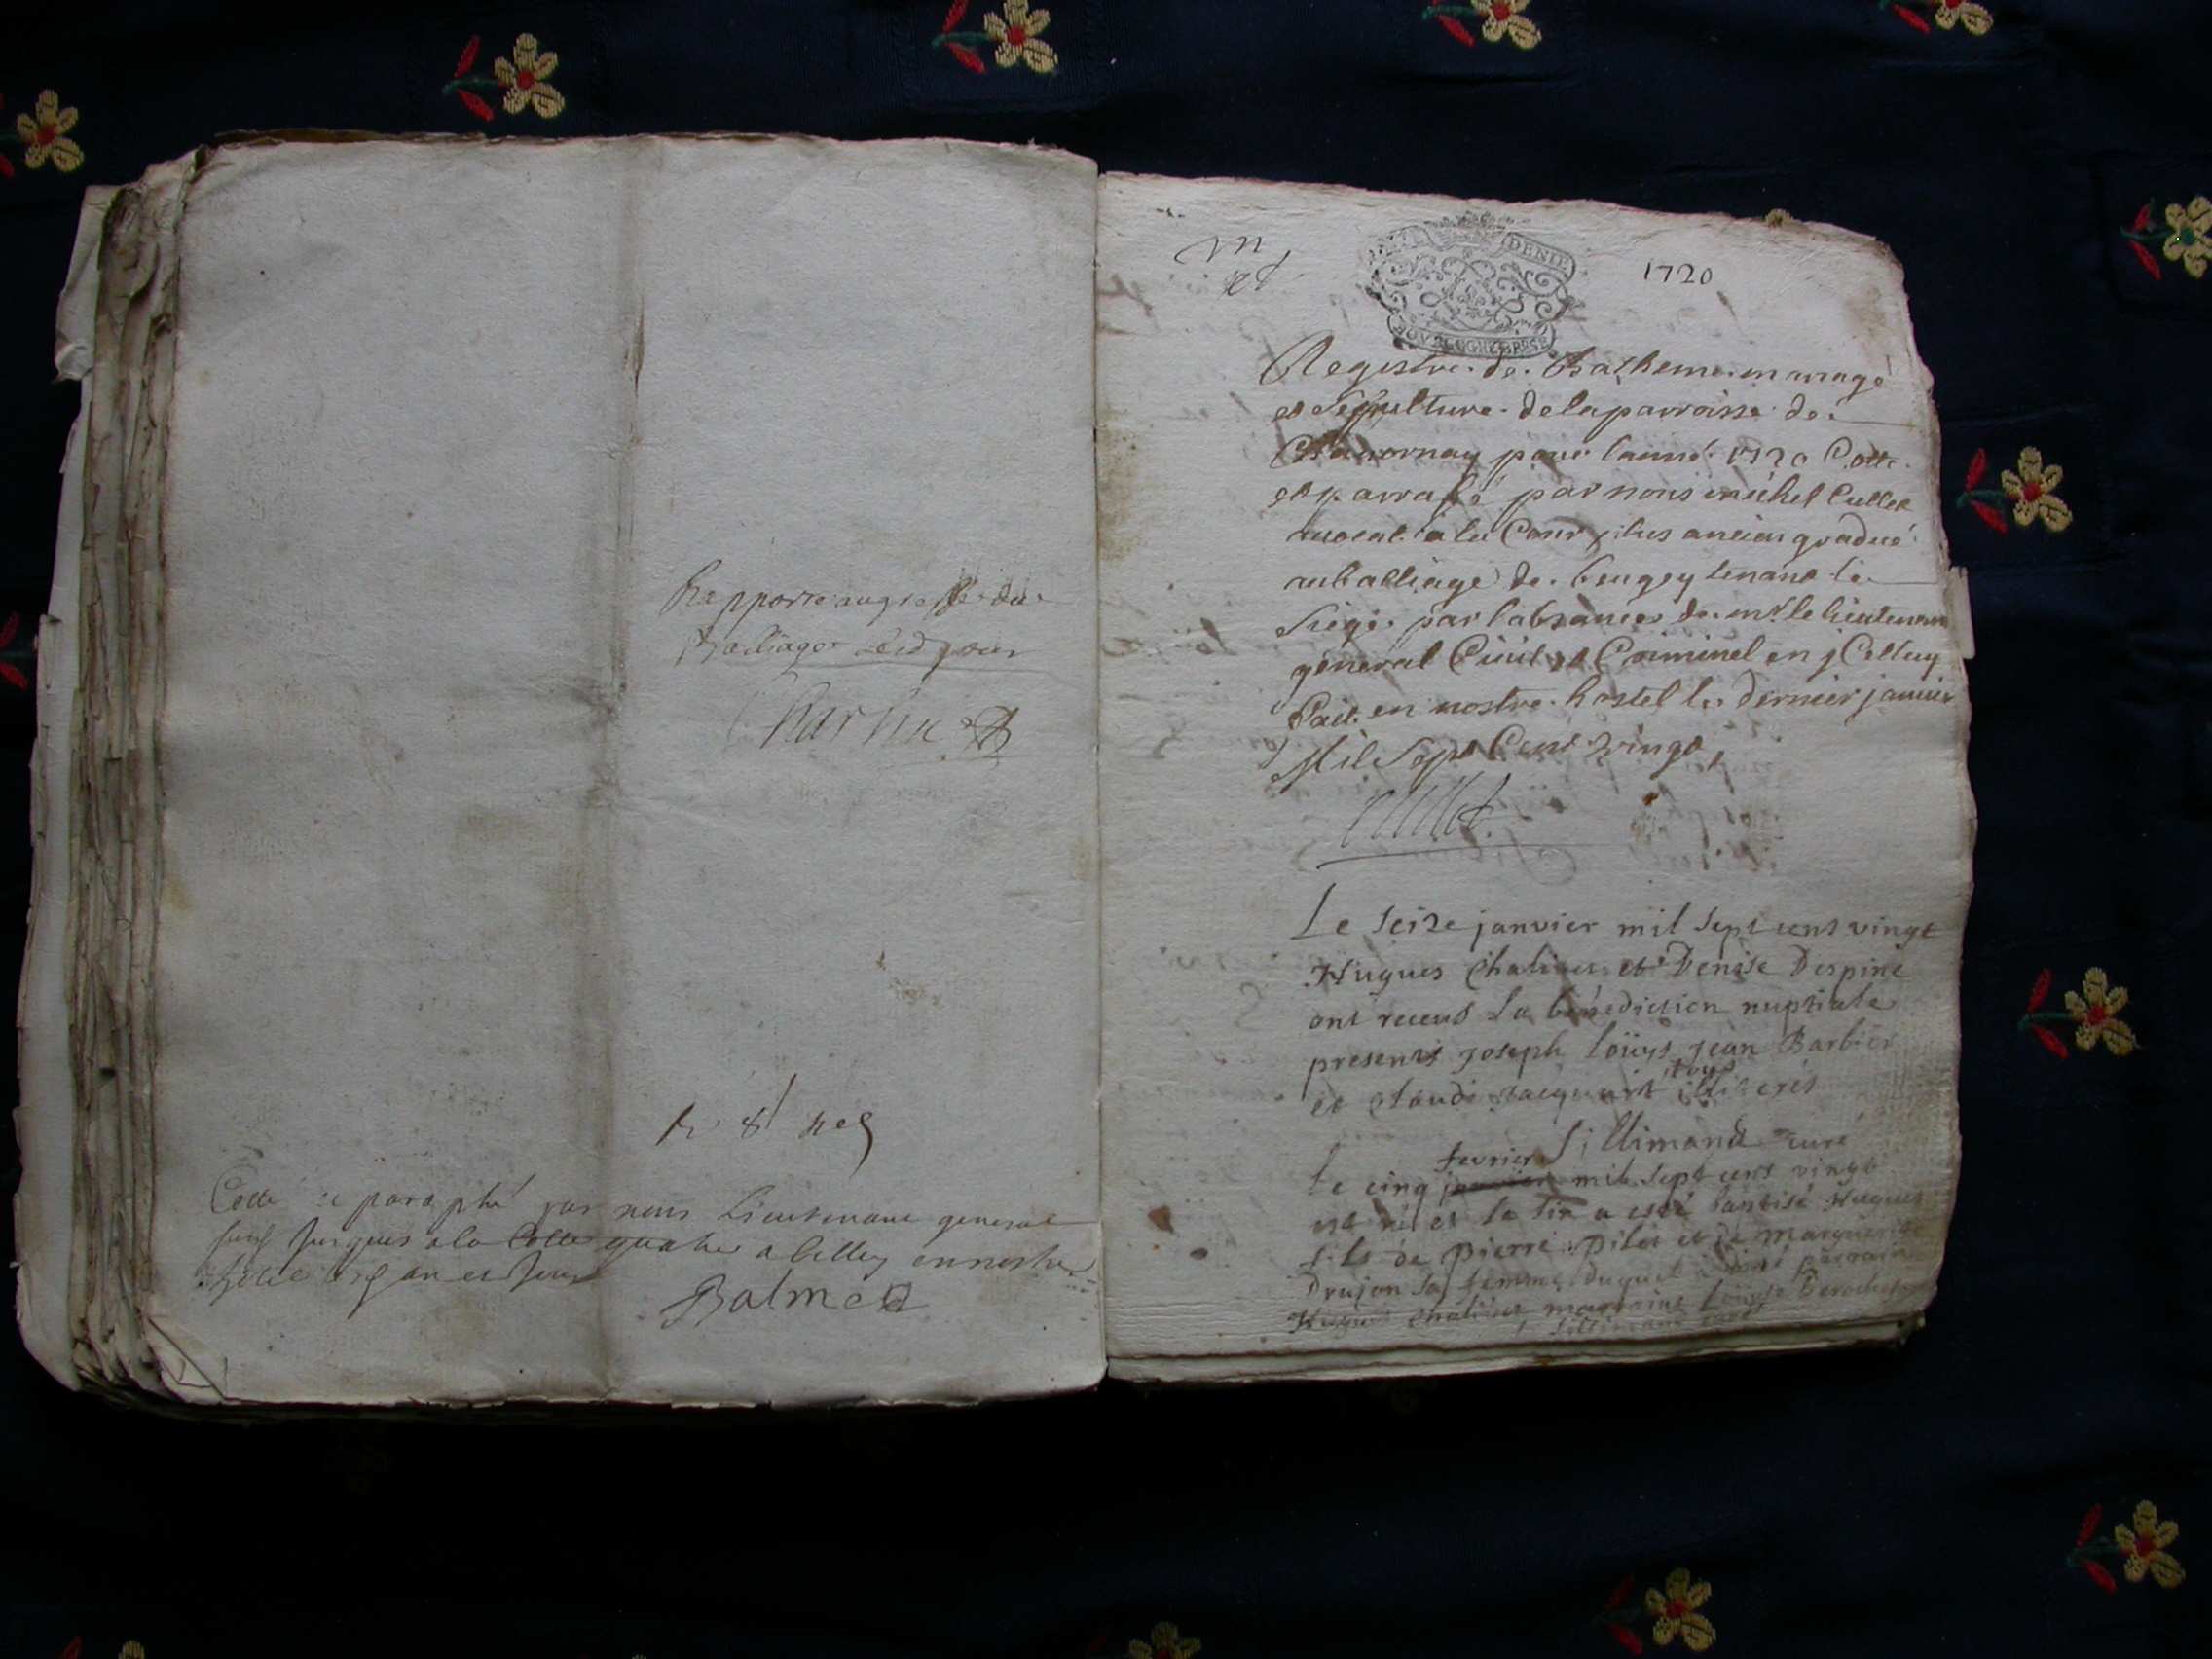 Rapporte au greffe du
Bailliage led jour
Cotte et paraphé par nous Lieutenant general
jusques a la Cotte quatre a belley en nostre
hotel
Balme
1720
DENIE
Registre de Batheme mariage
et Sepulture de la parroisse de
Chavornay pour l'anné 1720 Cotte
et parrafé par nous michel Cullet
avocat a la Cour plus ancien gradué
au balliage de beugey tenant le
Siege par l'absance de mr le lieutenant
general Civil et Criminel en jCelluy
Fait en nostre hostel le dernier janvier
Mil Sept Cent vingt
Cullet
Le seize janvier mil sept cent vingt
Hugues Chaliner et Denise Despine
ont receus la benediction nuptiale
presents joseph loüys jean Barbier
et Claude jacquint tous illiterés
Sillimand curé
fevrier
Le cinq janvier mil sept cent vingt
est né et le six a esté baptisé Hugues
fils de pierre pilet et de marguerite
Drujon sa femme duquel a été parrain
Hugues Chaliner marraine Louyse
Sillimand curé